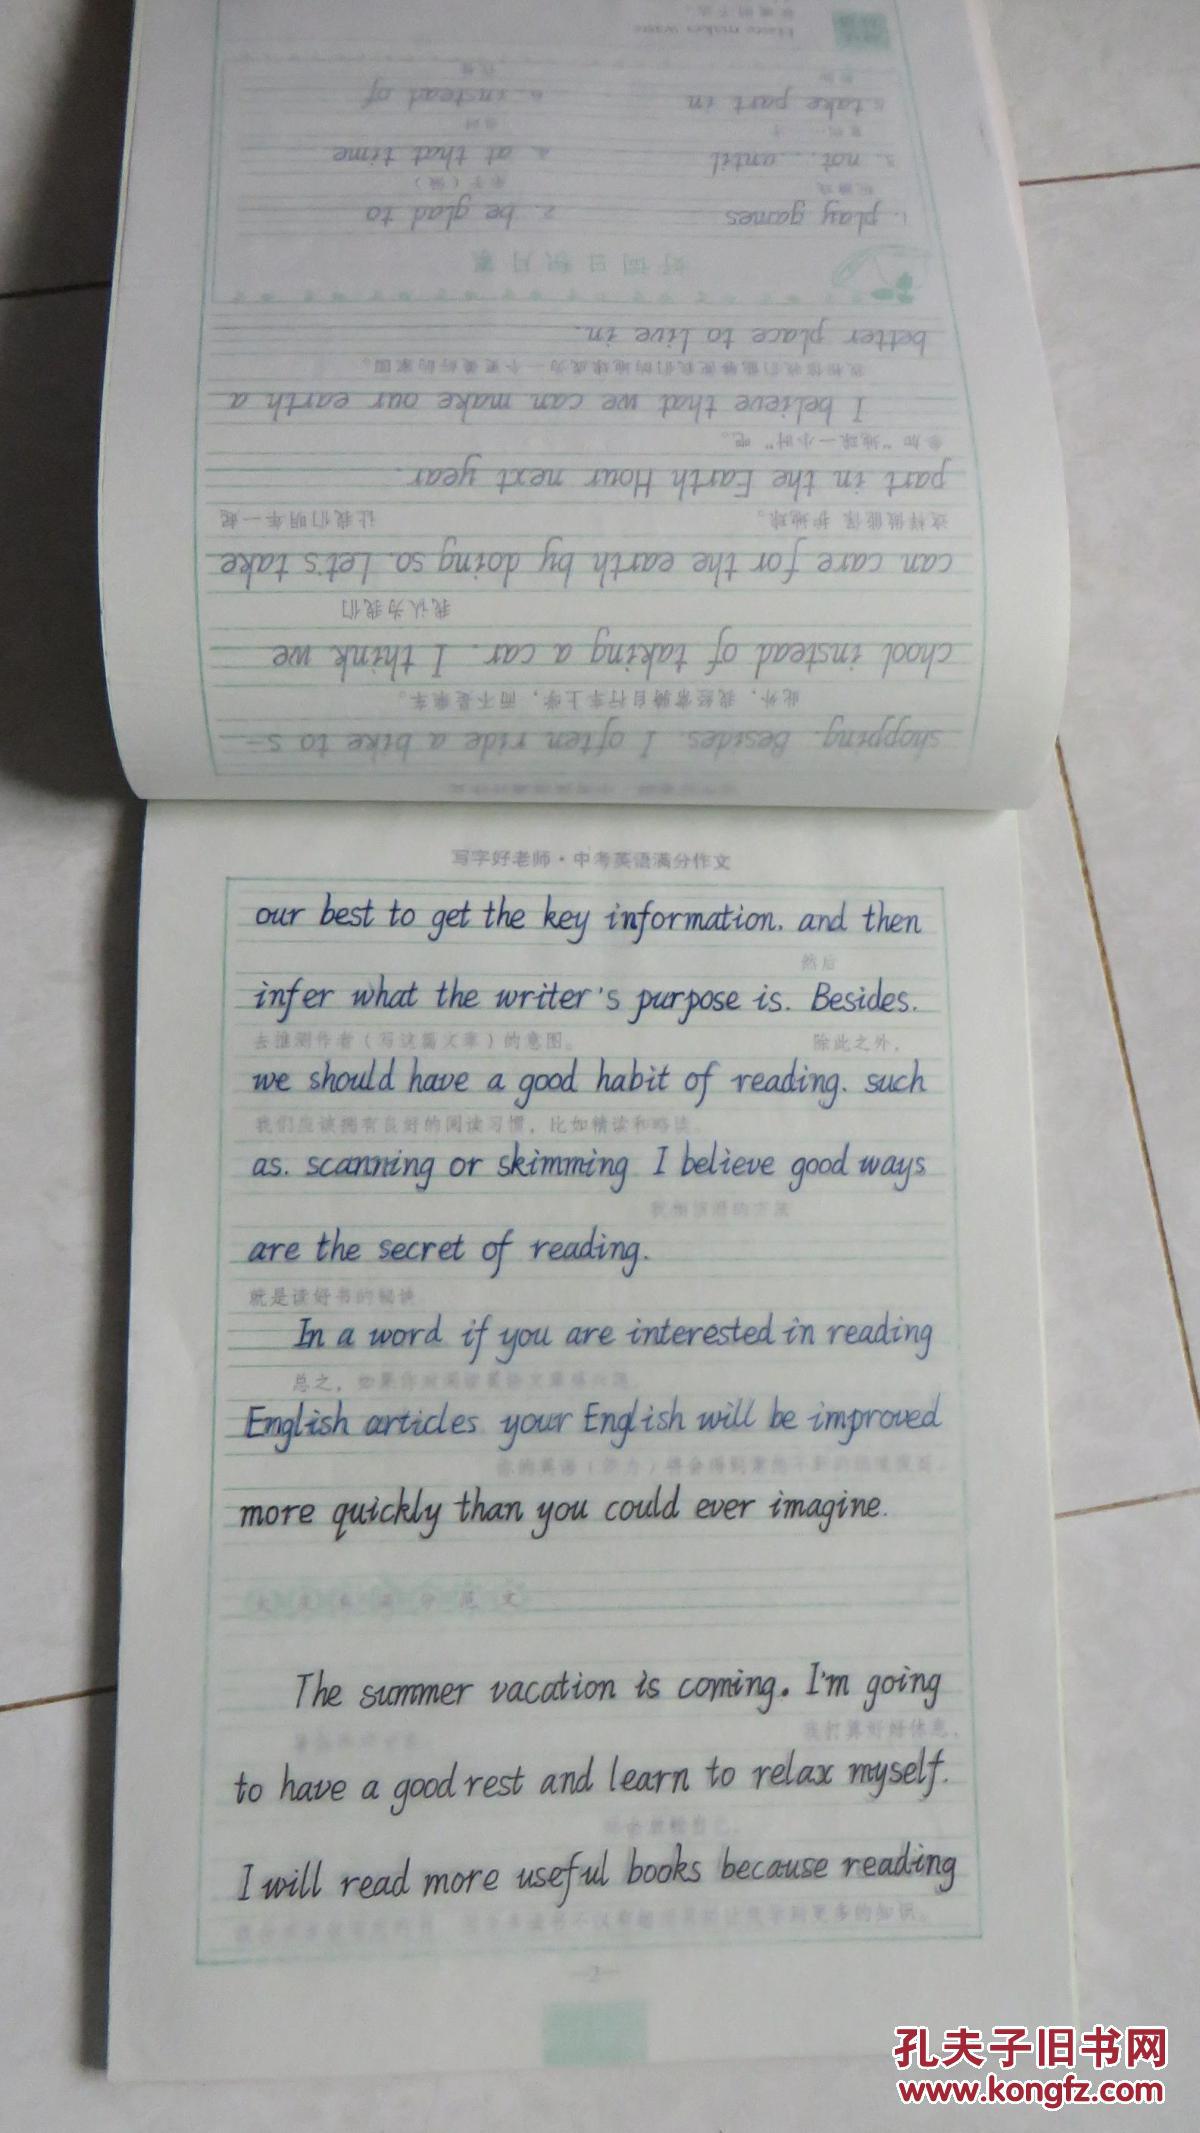 Place makes wave
5. take part in 6. instead of
3. not... until 4. at that time
1. play games 2. be glad to
好词日积月累
better place to live in.
我相信我们能够使我们的地球成为一个更美好的家园。
I believe that we can make our earth a
参加“地球一小时”吧。
part in the Earth Hour next year.
这样做能保护地球。 让我们明年一起
can care for the earth by doing so. Let's take
我认为我们
chool instead of taking a car. I think we
此外，我经常骑自行车上学，而不是乘车。
shopping. Besides, I often ride a bike to s-
写字好老师·中考英语满分作文
our best to get the key information. and then
然后
infer what the writer's purpose is. Besides.
去推测作者（写这篇文章）的意图。 除此之外，
we should have a good habit of reading. such
我们应该拥有良好的阅读习惯，比如精读和略读。
as. scanning or skimming I believe good ways
我相信好的方法
are the secret of reading.
就是读好书的秘诀
In a word if you are interested in reading
总之，如果你对阅读英语文章感兴趣，
English articles your English will be improved
你的英语（能力）将会得到
more quickly than you could ever imagine.
满分范文
The summer vacation is coming. I'm going
我打算好好休息，
to have a good rest and learn to relax myself.
I will read more useful books because reading
更多的知识。
—2—
孔夫子旧书网
www.kongfz.com